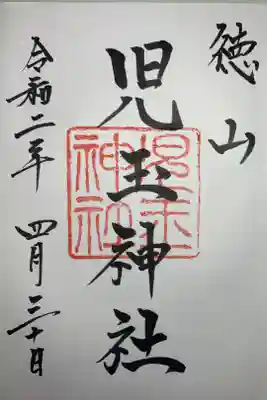 徳山
児玉神社
令和二年 四月三十日
児玉神社